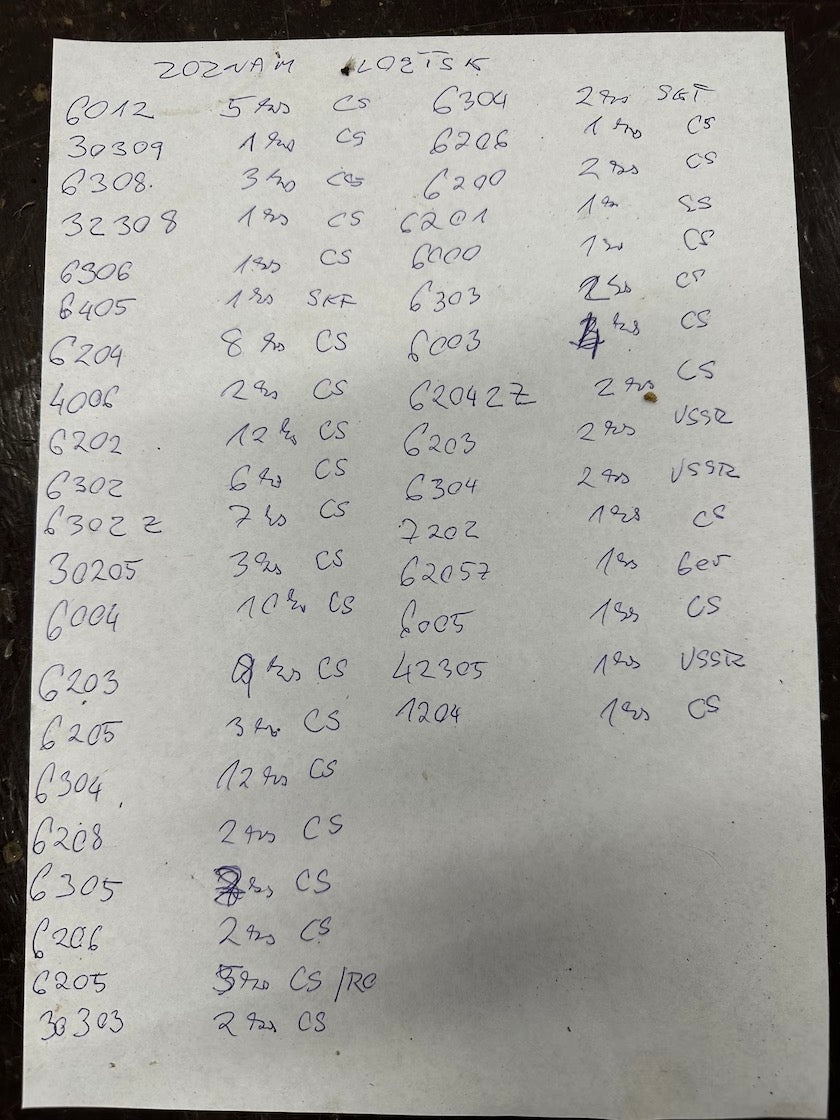 ZOZNAM LOŽÍSK
6012 5 ks CS
30309 1 ks CS
6308 3 ks CS
32308 1 ks CS
6306 1 ks CS
6405 1 ks SKF
6204 8 ks CS
4006 2 ks CS
6202 12 ks CS
6302 6 ks CS
6302 Z 7 ks CS
30205 3 ks CS
6004 10 ks CS
6203 ks CS
6205 3 ks CS
6304 12 ks CS
6208 2 ks CS
6305 ks CS
6206 2 ks CS
6205 5 ks CS /RC
30303 2 ks CS
6304 2 ks SKF
6206 1 ks CS
6200 2 ks CS
6201 1 ks
6000 1 ks CS
6303 2 ks CS
6003 ks CS
6204 2Z 2 ks CS
6203 2 ks USSR
6304 2 ks USSR
7202 1 ks CS
6205Z 1 ks
6005 1 ks CS
42305 1 ks USSR
1204 1 ks CS